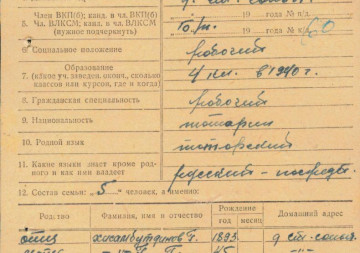 Член ВКП(б); канд. в чл. ВКП(б)
5. Чл. ВЛКСМ; канд. в чл. ВЛКСМ
(нужное подчеркнуть)
19 года № п/б.
19 года № к/к.
6. Социальное положение рабочий
Образование
7. (какое уч. заведен. окончил, сколько классов или курсов, где и когда) 4 кл. в 1940 г.
8. Гражданская специальность рабочий
9. Национальность татарин
10. Родной язык татарский
11. Какие языки знает кроме родного и как ими владеет русский - посредств.
12. Состав семьи: 5 человек, а именно:
Родство Фамилия, имя и отчество Рождение год месяц Домашний адрес
отец Хисамутдинов Г. 1893